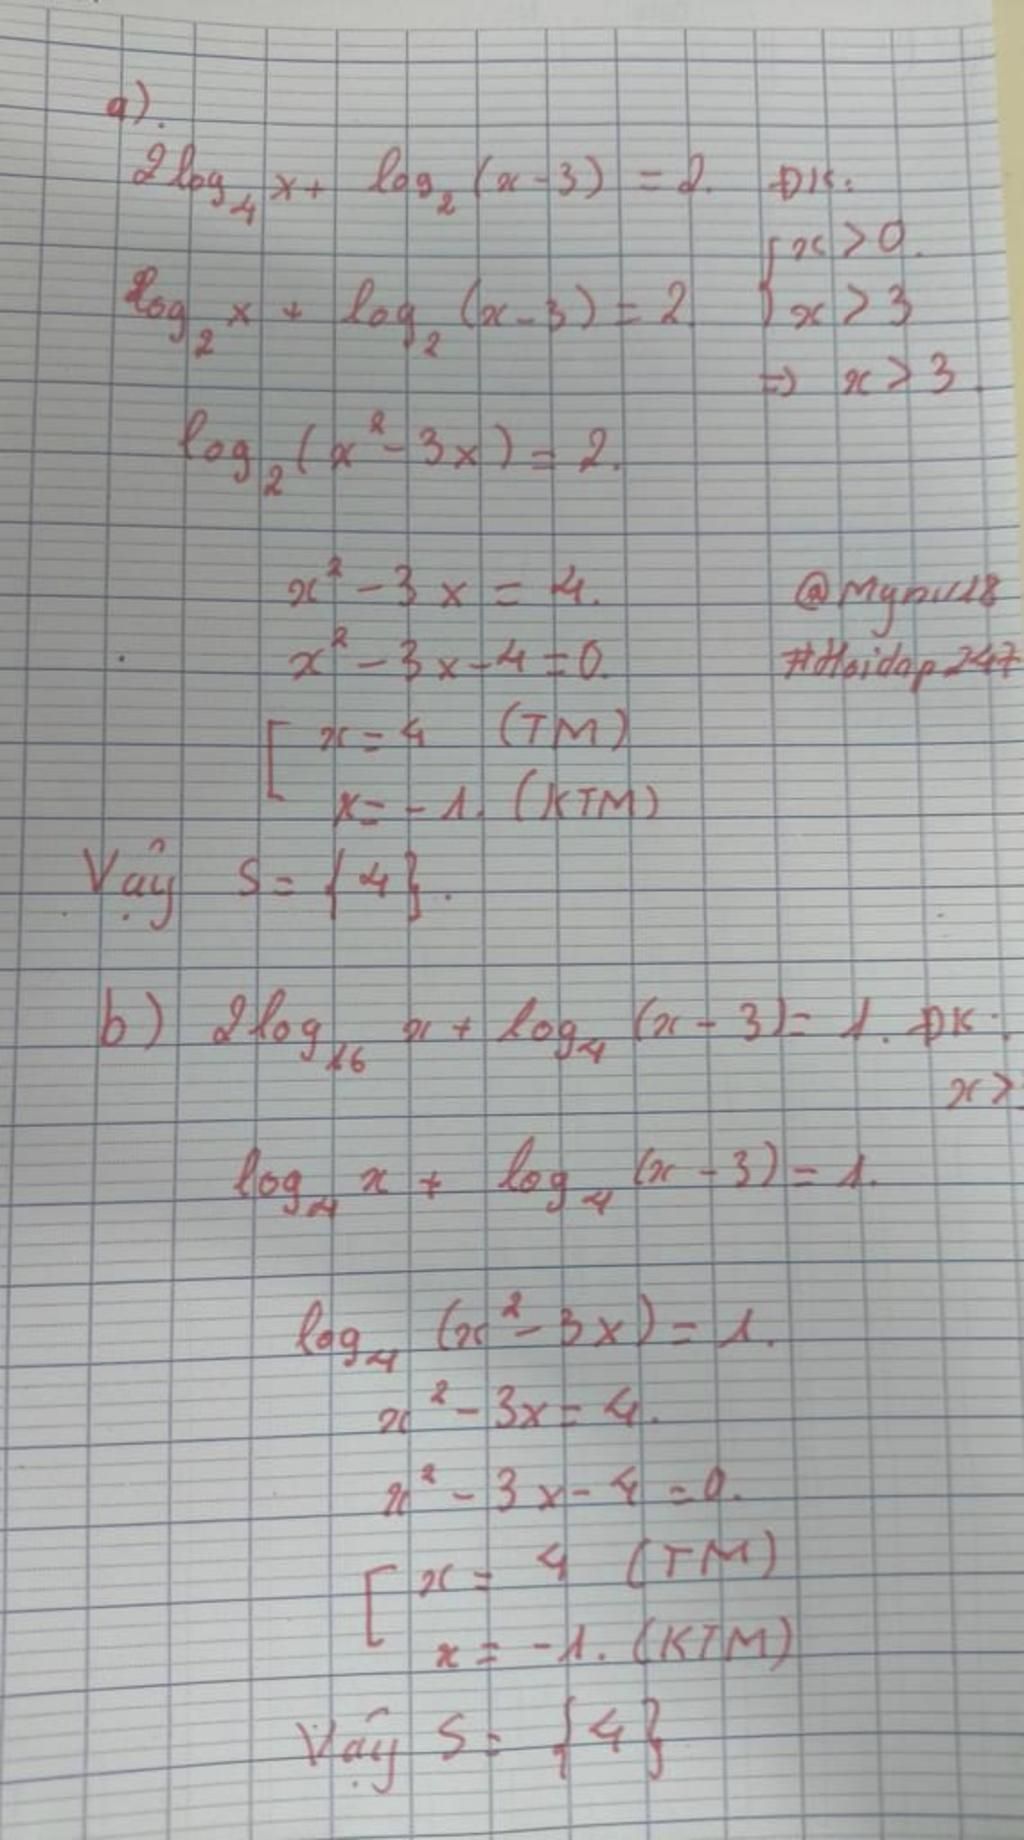 a).
2log₄ x + log₂ (x - 3) = 2. ĐK:
{ x > 0.
log₂ x + log₂ (x - 3) = 2 { x > 3
=> x > 3.
log₂ (x² - 3x) = 2.
x² - 3x = 4.
x² - 3x - 4 = 0.
#Hoidap247
[ x = 4 (TM)
x = -1. (KTM)
Vậy S = {4}.
b) 2log₁₆ x + log₄ (x - 3) = 1. ĐK:
x >
log₄ x + log₄ (x - 3) = 1.
log₄ (x² - 3x) = 1.
x² - 3x = 4.
x² - 3x - 4 = 0.
[ x = 4 (TM)
x = -1. (KTM)
Vậy S = {4}